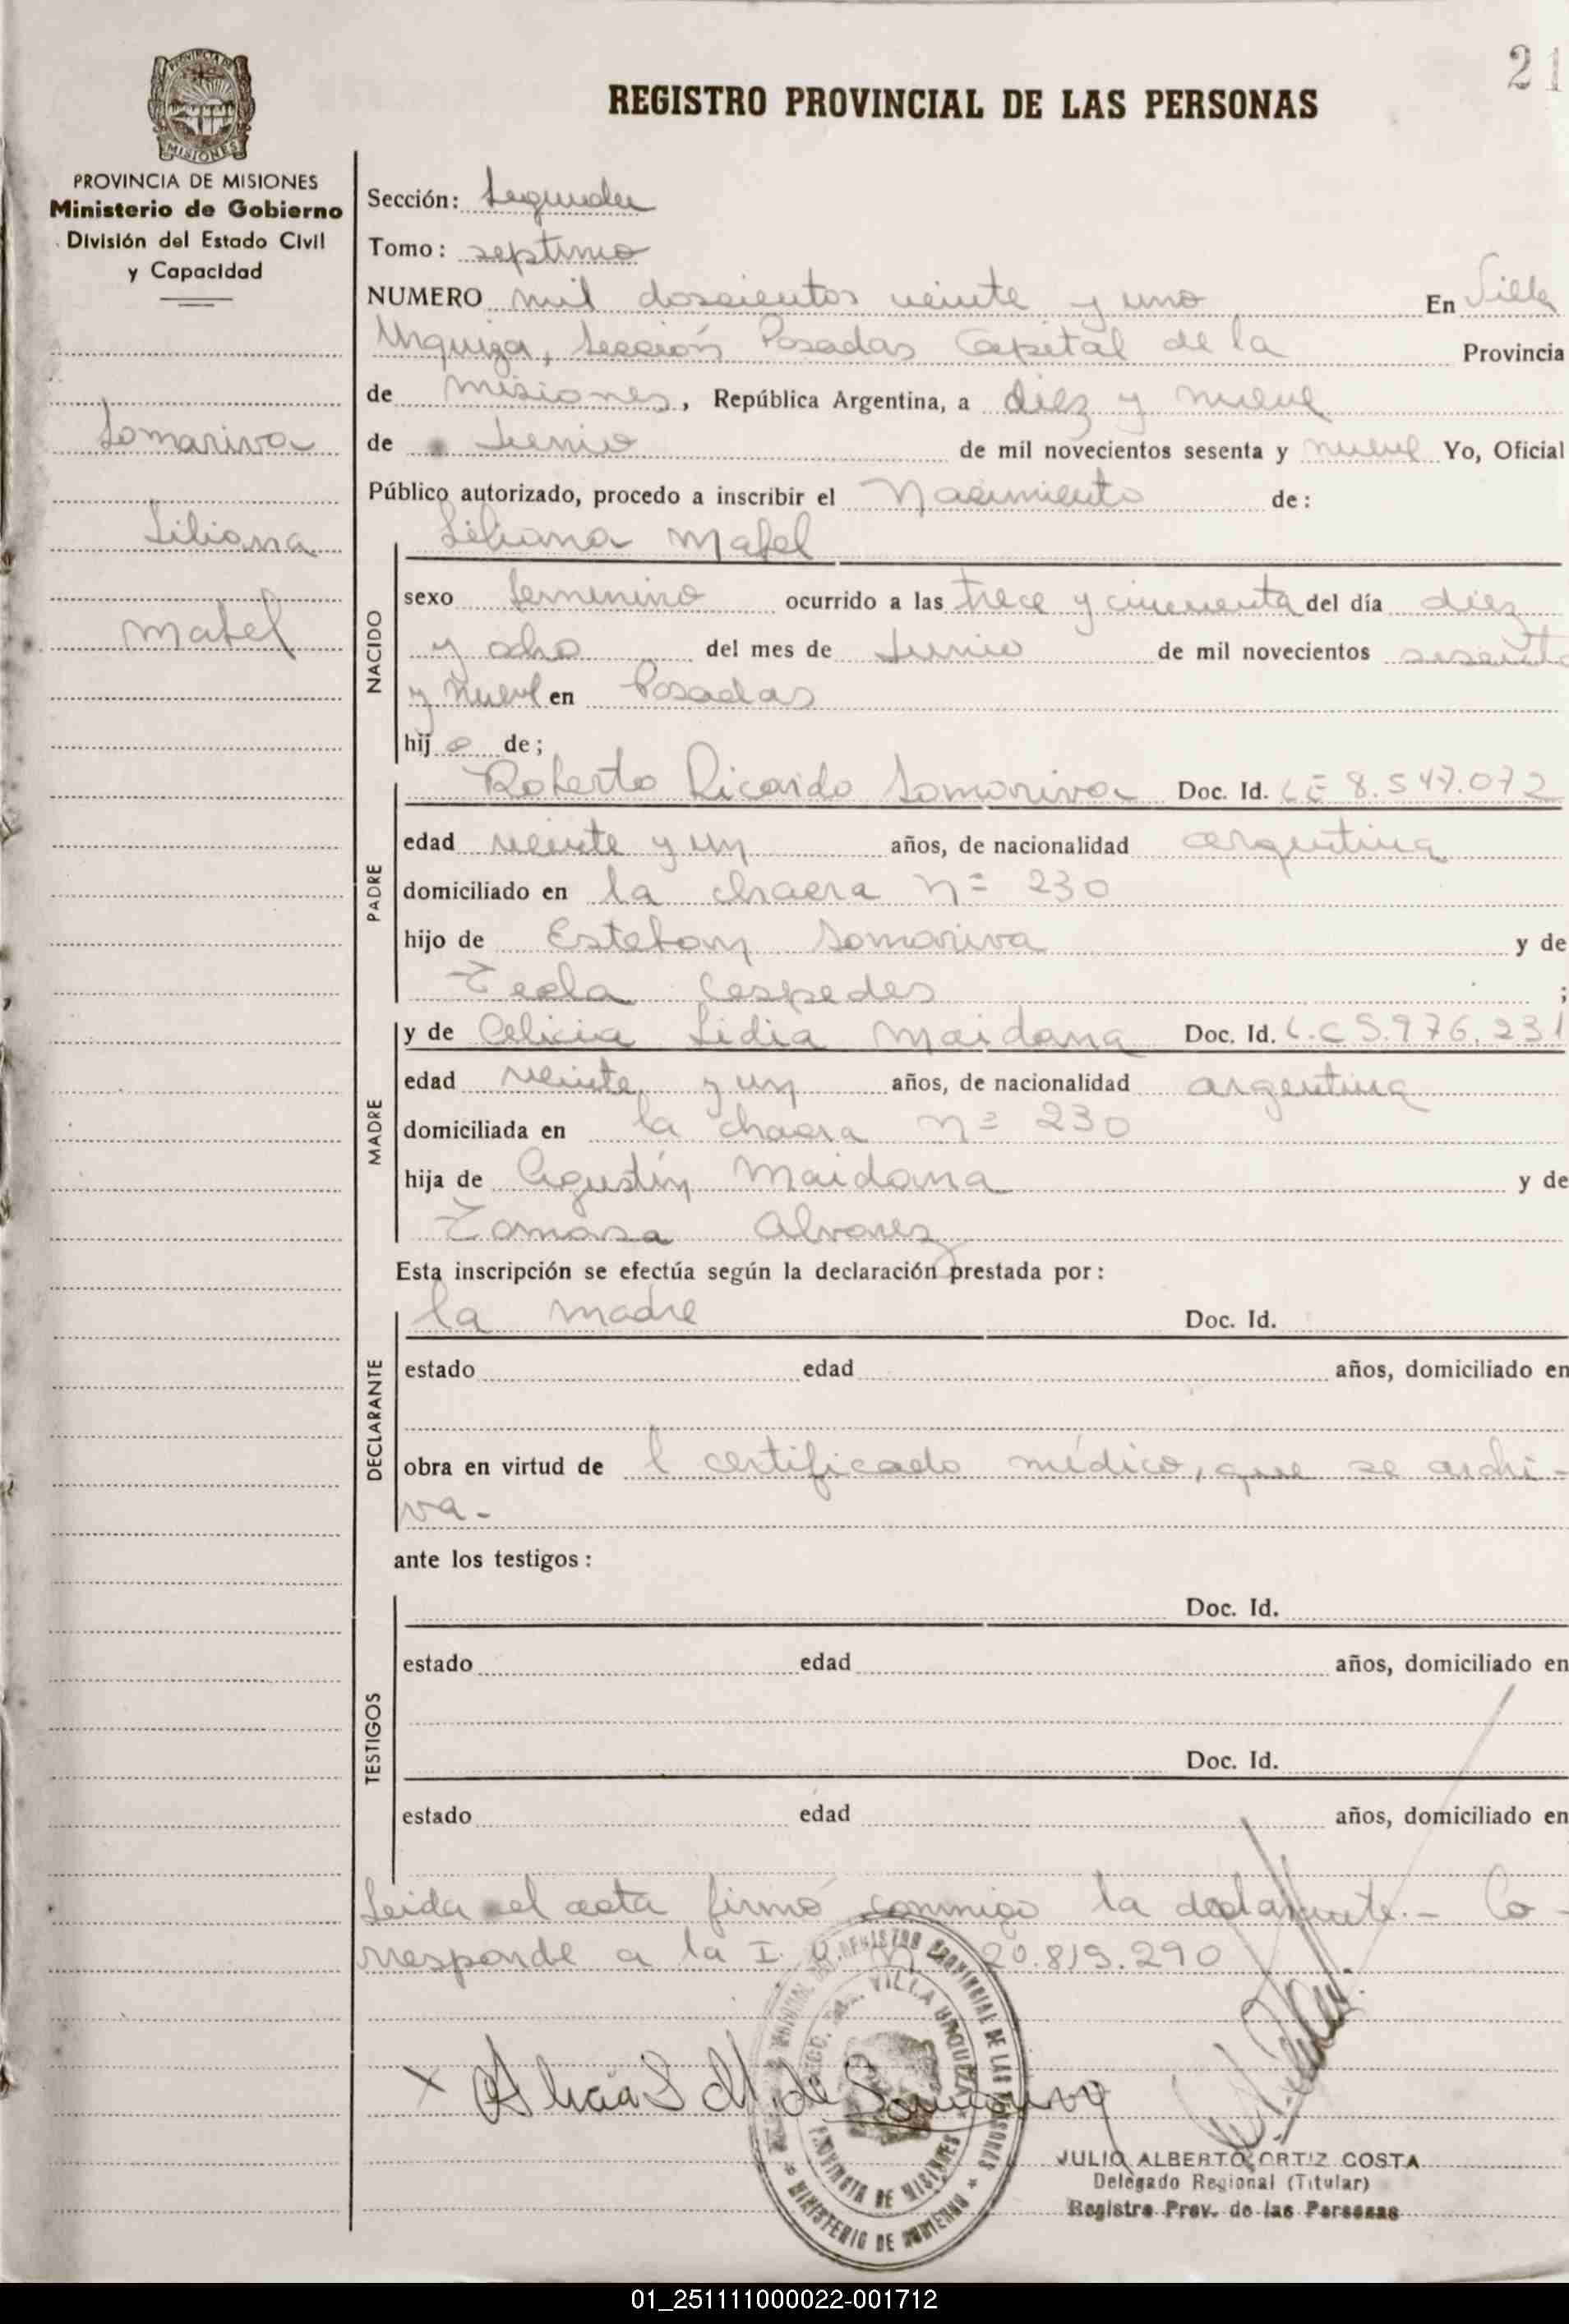 21
REGISTRO PROVINCIAL DE LAS PERSONAS
MISIONES
PROVINCIA DE MISIONES
Ministerio de Gobierno
División del Estado Civil
y Capacidad
Somariva
Liliana
Mabel
Sección: Segunda
Tomo: septimo
NUMERO mil doscientos veinte y uno En Villa
Urquiza, Sección Posadas Capital de la Provincia
de misiones, República Argentina, a diez y nueve
de Junio de mil novecientos sesenta y nueve Yo, Oficial
Público autorizado, procedo a inscribir el Nacimiento de:
Liliana Mabel
NACIDO
sexo femenino ocurrido a las trece y cincuenta del día diez
y ocho del mes de Junio de mil novecientos sesenta
y nueve en Posadas
hij a de;
PADRE
Roberto Ricardo Somariva Doc. Id. LE 8.547.072
edad veinte y un años, de nacionalidad argentina
domiciliado en la chacra nº 230
hijo de Esteban Somariva y de
Tecla Cespedes ;
MADRE
y de Alicia Lidia Maidana Doc. Id. L.C 5.976.231
edad veinte y un años, de nacionalidad argentina
domiciliada en la chacra nº 230
hija de Agustín Maidana y de
Tomasa Alvarez
Esta inscripción se efectúa según la declaración prestada por:
DECLARANTE
la madre Doc. Id.
estado edad años, domiciliado en
obra en virtud de l certificado médico, que se archi-
va.-
ante los testigos:
TESTIGOS
Doc. Id.
estado edad años, domiciliado en
Doc. Id.
estado edad años, domiciliado en
Leida el acta firmó conmigo la declarante.- Co-
rresponde a la I. 20.819.290
x Alicia L M. de Somariva
REGISTRO PROVINCIAL DE LAS PERSONAS
VILLA URQUIZA
PROVINCIA DE MISIONES
MINISTERIO DE GOBIERNO
JULIO ALBERTO ORTIZ COSTA
Delegado Regional (Titular)
Registro Prov. de las Personas
01_251111000022-001712